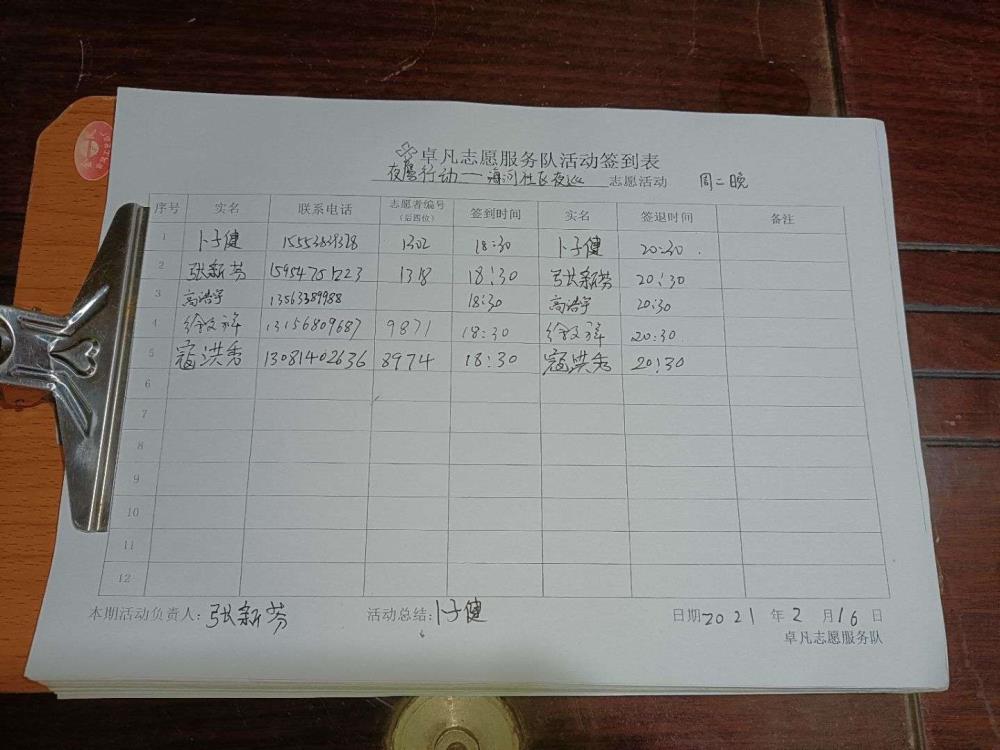 卓凡志愿服务队活动签到表
夜鹰行动——海河社区夜巡 志愿活动 周二晚
序号 实名 联系电话 志愿者编号（后四位） 签到时间 实名 签退时间 备注
1 卜子健 15553839328 1302 18:30 卜子健 20:30
2 张新芳 15954751223 1318 18:30 张新芳 20:30
3 高浩宇 13563389988 18:30 高浩宇 20:30
4 徐文祥 13156809687 9871 18:30 徐文祥 20:30
5 寇洪秀 13081402636 8974 18:30 寇洪秀 20:30
6
7
8
9
10
11
12
本期活动负责人：张新芳 活动总结：卜子健 日期2021年2月16日
卓凡志愿服务队